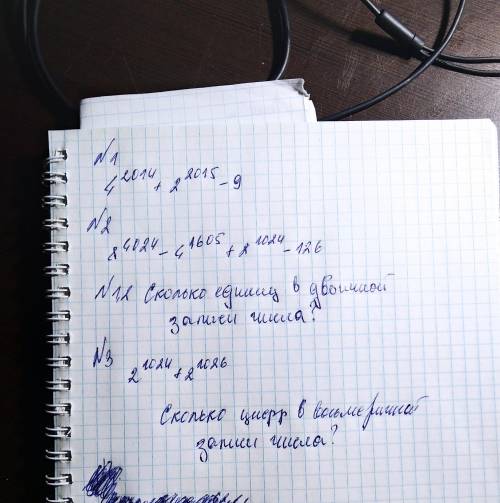 №1
4^2014 + 2^2015 - 9
№2
8^4024 - 4^1605 + 2^1024 - 126
№1,2 Сколько единиц в двоичной
записи числа?
№3
2^1024 + 2^1026
Сколько цифр в восьмеричной
записи числа?